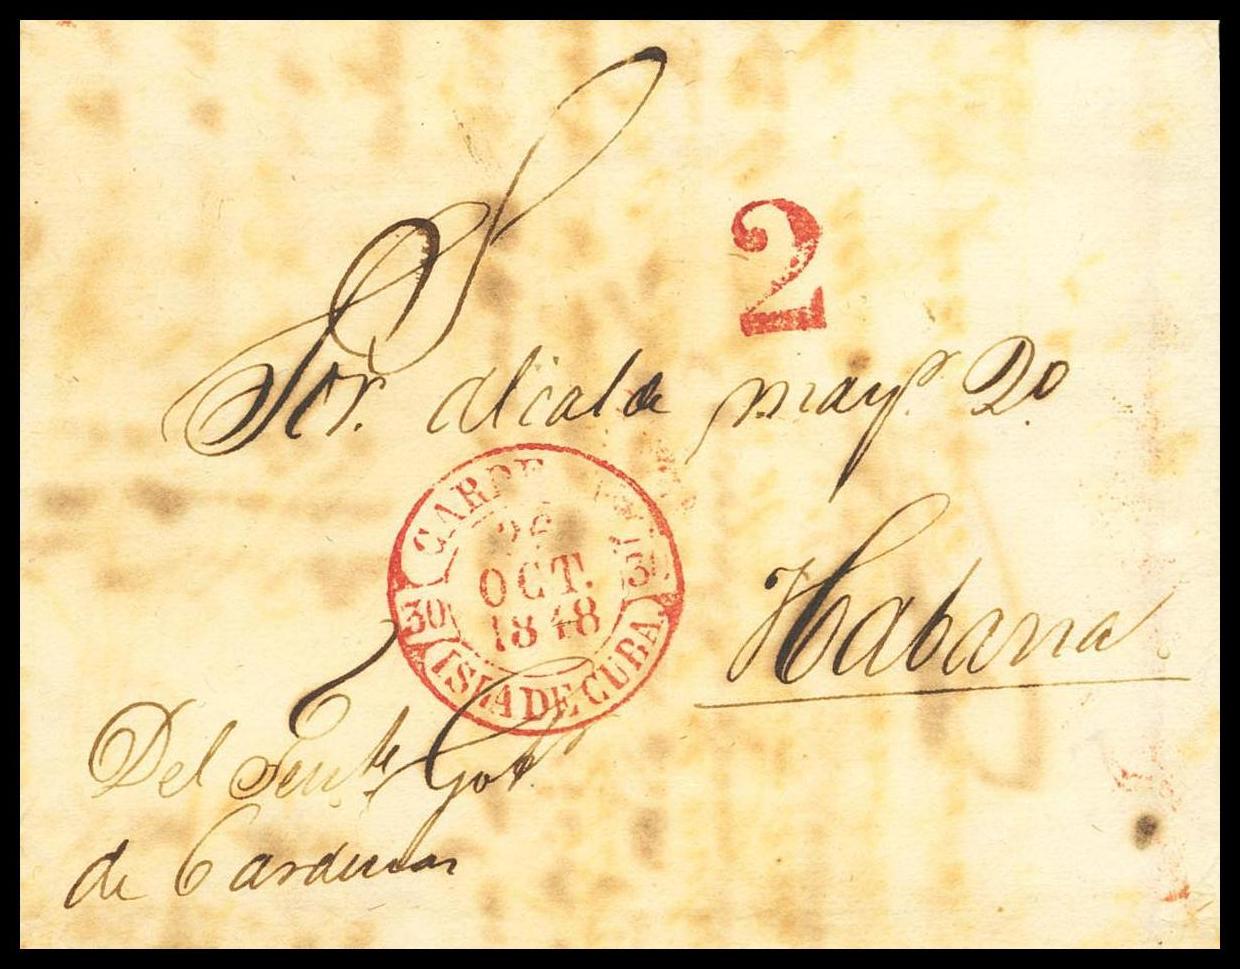 S
2
Sor. Alcalde mayr. 2o.
CARDENAS
26
OCT.
1848
30
ISLA DE CUBA.
Habana
Del Tente Gobr
de Cardenas